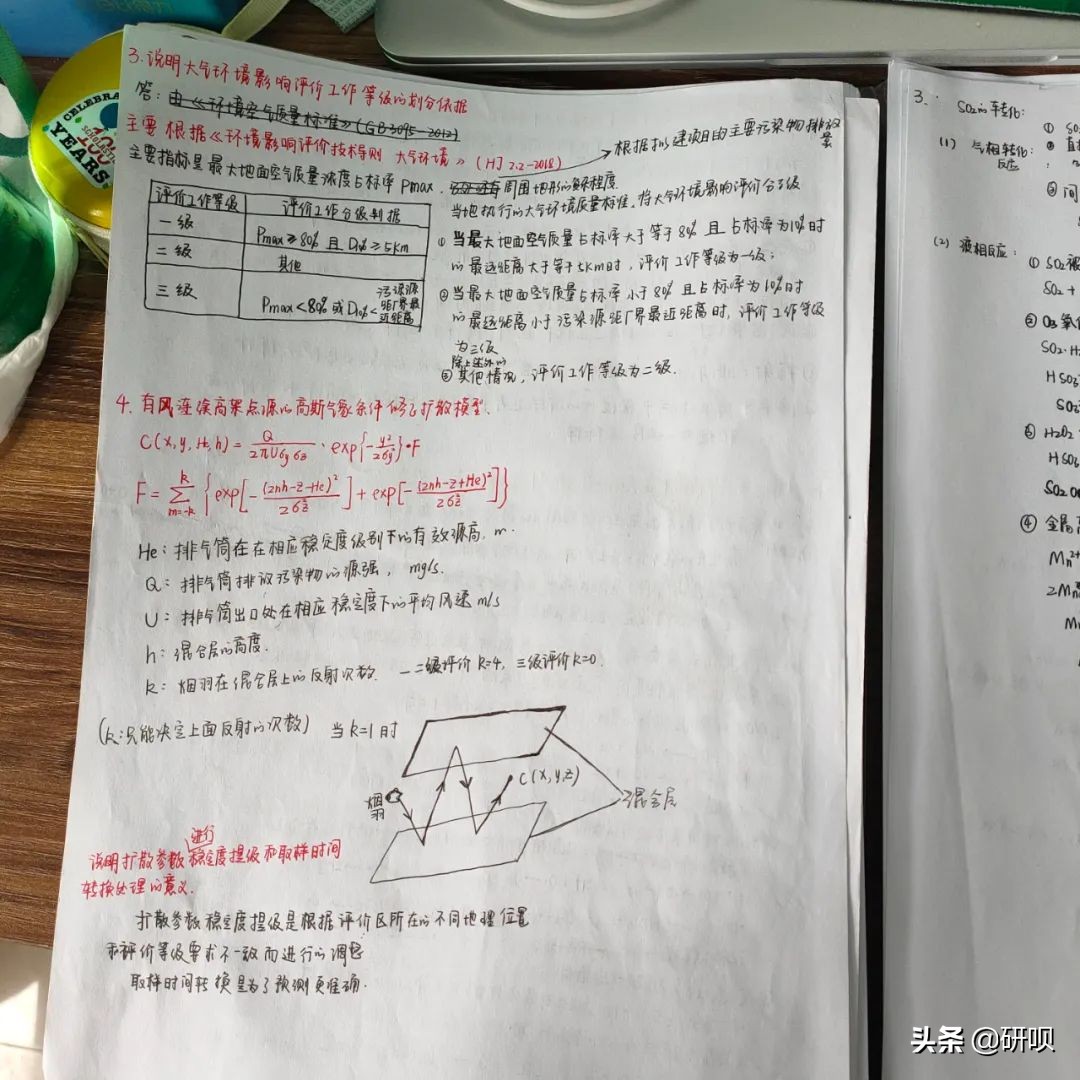 3.说明大气环境影响评价工作等级的划分依据
答:由《环境空气质量标准》(GB3095-2012)
主要根据《环境影响评价技术导则 大气环境》(HJ 2.2-2018)
根据拟建项目的主要污染物排放量
主要指标是最大地面空气质量浓度占标率Pmax.
周围地形的复杂程度.
当地执行的大气环境质量标准,将大气环境影响评价分三级
评价工作等级 评价工作分级判据
一级 Pmax≥80% 且 D10%≥5km
二级 其他
三级 Pmax<80% 或 D10%<污染源距厂界最近距离
① 当最大地面空气质量占标率大于等于80% 且占标率为10%时
的最远距离大于等于5km时,评价工作等级为一级;
② 当最大地面空气质量占标率小于80% 且占标率为10%时
的最远距离小于污染源距厂界最近距离时,评价工作等级
为三级
除上述外的
③ 其他情况,评价工作等级为二级.
4.有风连续高架点源的高斯气象条件修正扩散模型.
C(x,y,He,h)=Q/(2πUσyσz)·exp{-y²/2σy²}·F
F=Σ(m=-k→k){exp[-(2nh-z-He)²/2σz²]+exp[-(2nh-z+He)²/2σz²]}
He:排气筒在在相应稳定度级别下的有效源高,m.
Q:排气筒排放污染物的源强, mg/s.
U:排气筒出口处在相应稳定度下的平均风速 m/s
h:混合层的高度.
k:烟羽在混合层上的反射次数. 一二级评价 k=4, 三级评价k=0.
(k:只能决定上面反射的次数) 当k=1时
C(x,y,z)
烟羽
混合层
进行
说明扩散参数稳定度提级和取样时间
转换处理的意义.
扩散参数稳定度提级是根据评价区所在的不同地理位置
和评价等级要求不一致而进行的调整
取样时间转换是为了预测更准确.
3.
SO₂的转化:
(1) 气相转化:
反应
①
②
③ 间
(2) 液相反应:
① SO₂被
SO₂ +
② O₃氧化
SO₂·H₂
HSO₃
SO₃
③ H₂O₂
HSO₃
④ 金属
Mn²⁺
CELEBRA
100
YEARS
头条 @研呗